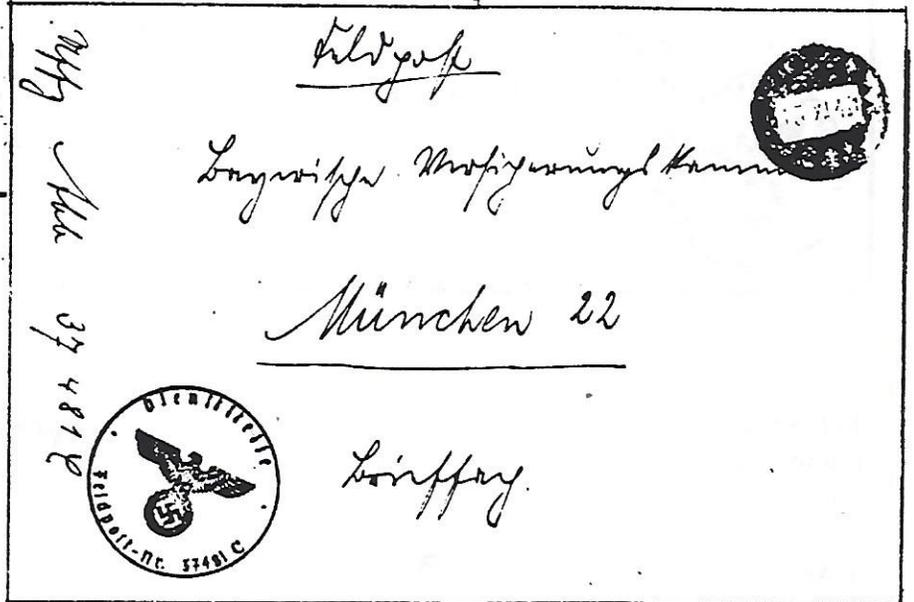 Feldpost
Bayerische Versicherungskamm
München 22
Brieffach.
Uffz 37 481 C
Dienststelle
Feldpost-Nr. 37481 C